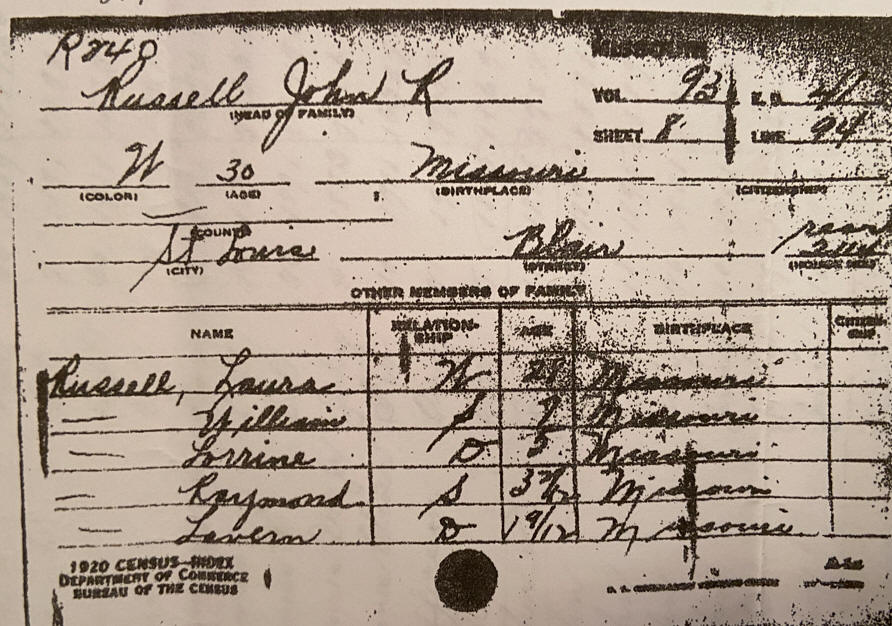 R240
Russell John R
(HEAD OF FAMILY)
VOL. 93 E.D. 41
SHEET 8 LINE 94
W 30 Missouri
(COLOR) (AGE) (BIRTHPLACE) (CITIZENSHIP)
(COUNTY)
St Louis Blair rear
(CITY) (STREET) (HOUSE NO.)
OTHER MEMBERS OF FAMILY
NAME RELATION-SHIP AGE BIRTHPLACE CITIZEN-SHIP
Russell, Laura W 28 Missouri
— William S Missouri
— Lorrine D 5 Missouri
— Raymond S Missouri
— Lavern D 1 9/12 Missouri
1920 CENSUS—INDEX
DEPARTMENT OF COMMERCE
BUREAU OF THE CENSUS